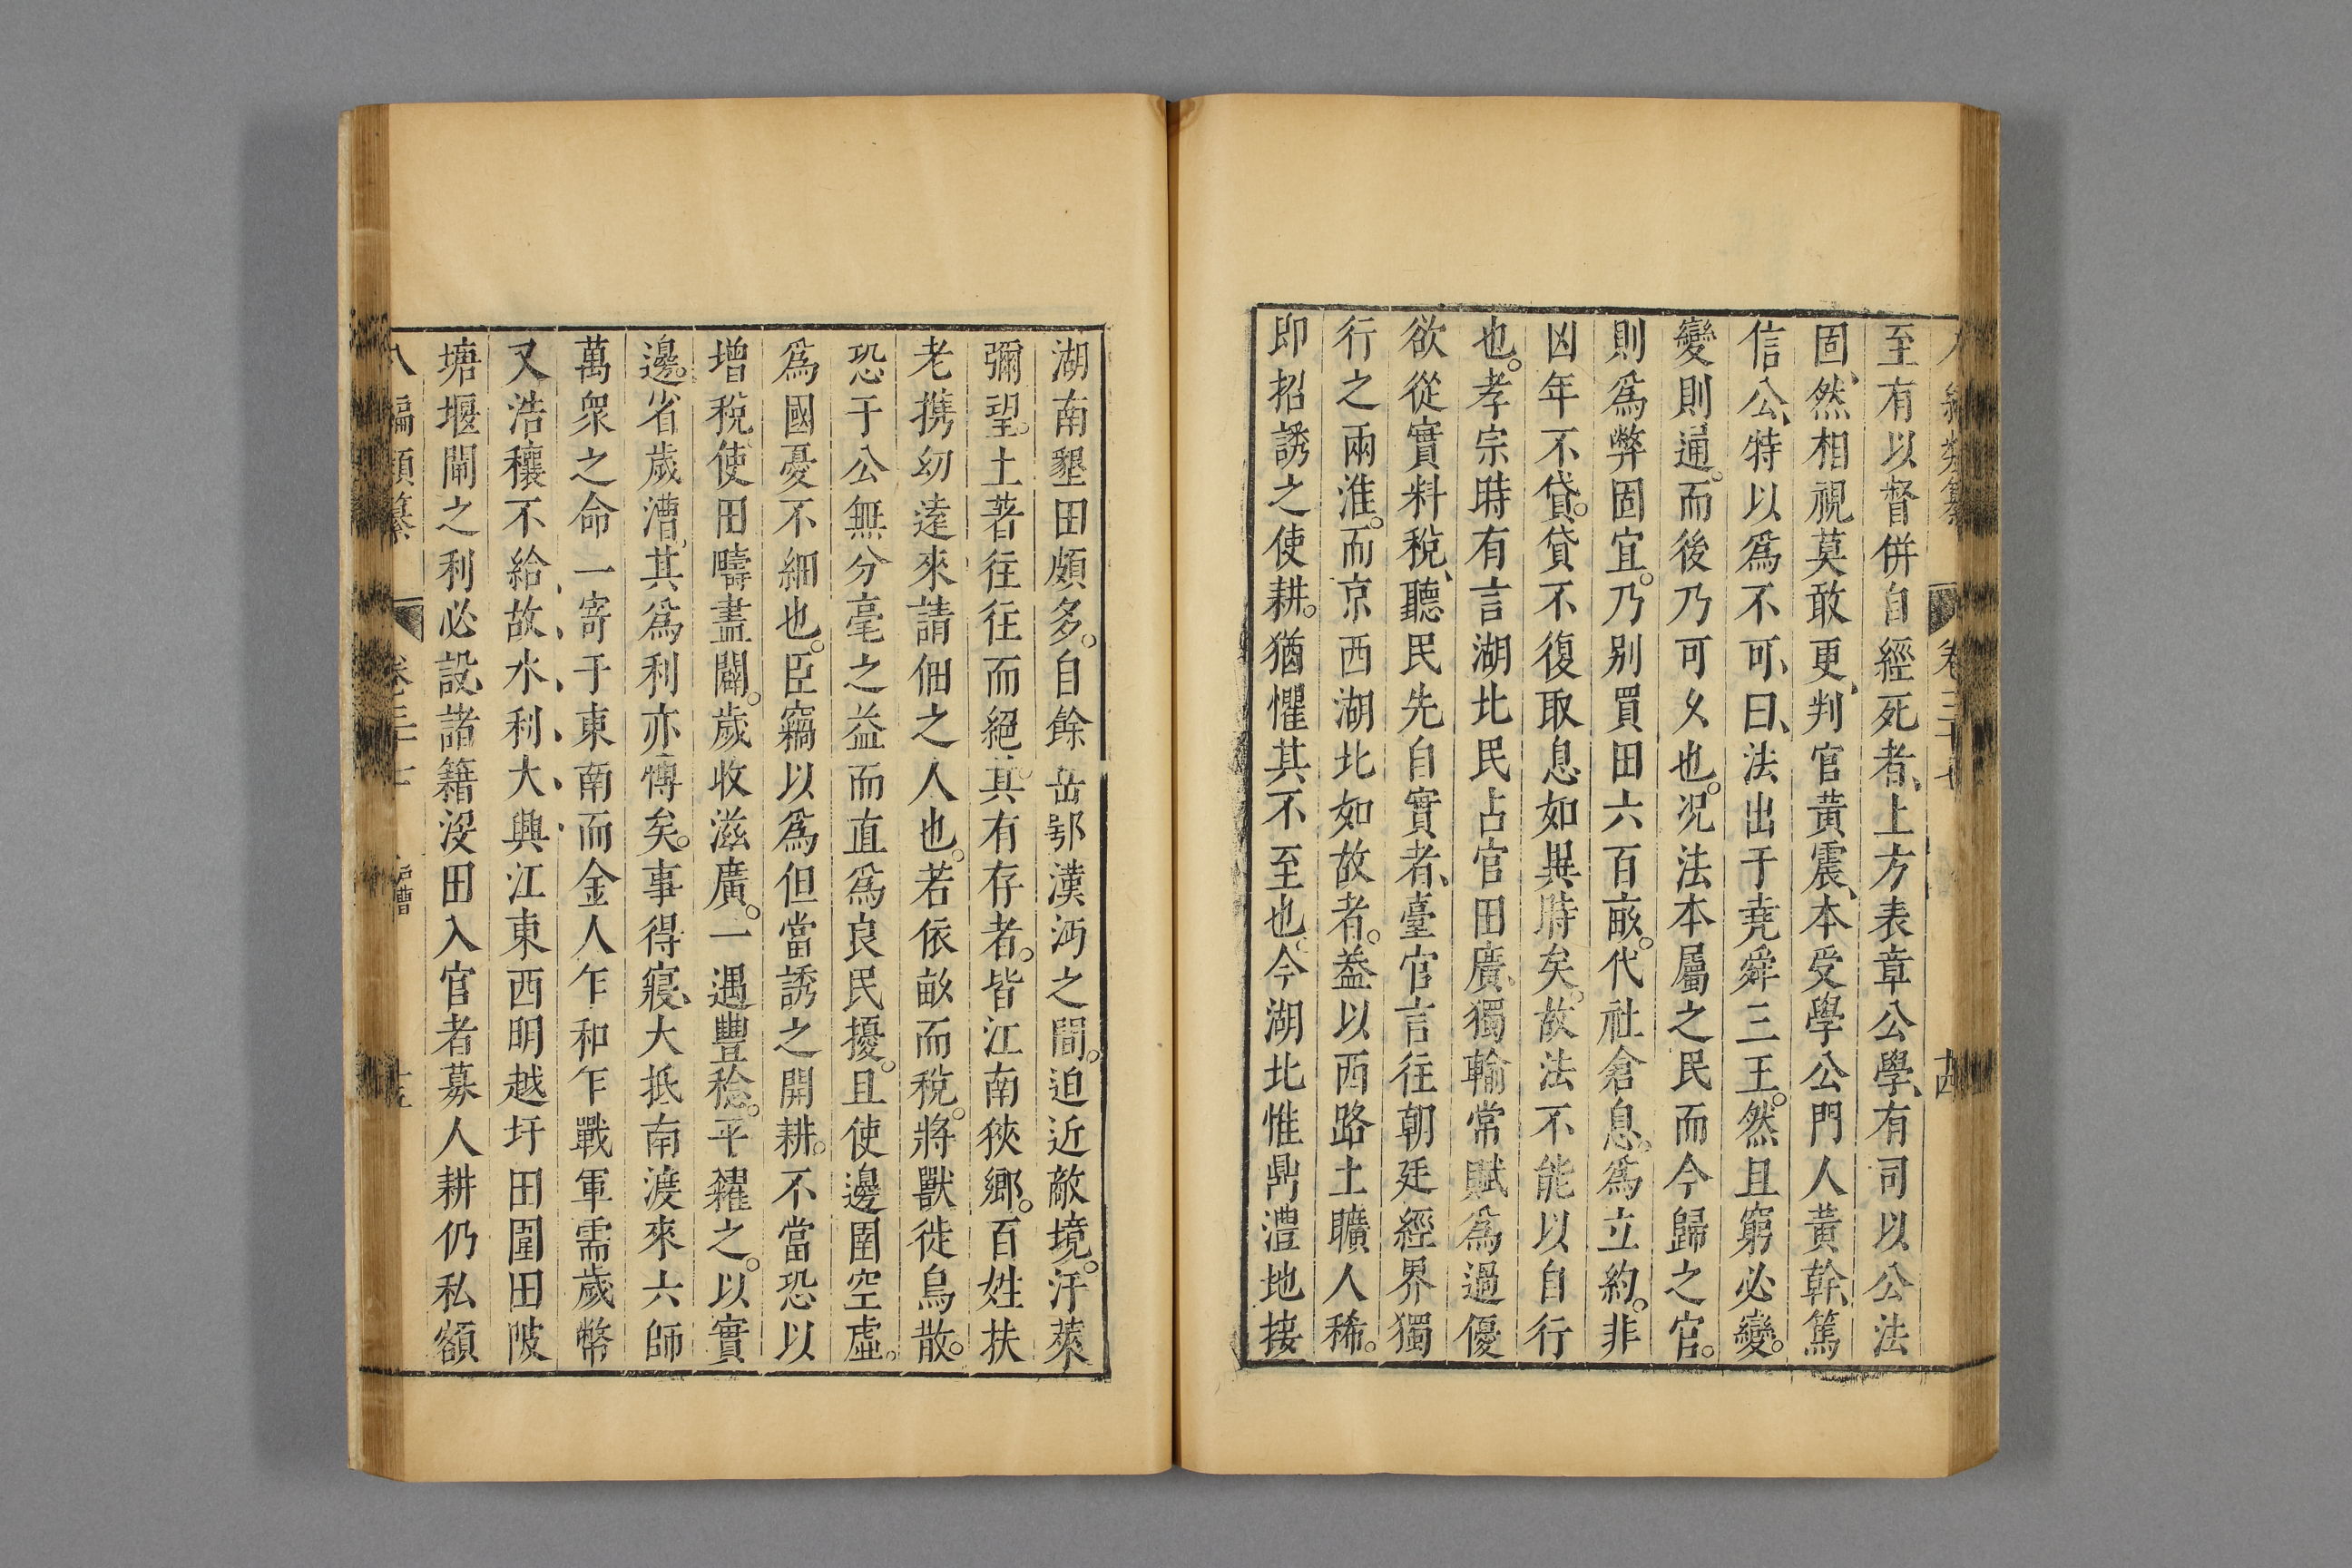 八編類纂 卷三十七 十四
至有以督併自經死者、上方表章公學、有司以公法
固、然相視莫敢更、判官黃震、本受學公門人黃幹、篤
信公、特以爲不可、曰、法出于堯舜三王。然且窮必變。
變則通。而後乃可久也。况法本屬之民而今歸之官。
則爲弊固宜。乃别買田六百畝。代社倉息。爲立約。非
凶年不貸。貸不復取息如異時矣。故法不能以自行
也。孝宗時有言湖北民占官田廣、獨輸常賦爲過優
欲從實料稅、聽民先自實者、臺官言往朝廷經界獨
行之兩淮。而京西湖北如故者。葢以西路土曠人稀。
即招誘之使耕。猶懼其不至也。今湖北惟鼎澧地接
湖南墾田頗多。自餘岳鄂漢沔之間。迫近敵境。汙萊
彌望。土著往往而絕。其有存者。皆江南狹鄉。百姓扶
老携幼遠來請佃之人也。若依畝而稅。將獸徙鳥散。
恐于公無分毫之益而直爲良民擾。且使邊圉空虛。
爲國憂不細也。臣竊以爲但當誘之開耕。不當恐以
增稅。使田疇盡闢。歲收滋廣。一遇豐稔。平糴之。以實
邊。省歲漕。其爲利亦博矣。事得寢、大抵南渡來六師
萬衆之命一寄于東南而金人乍和乍戰軍需歲幣
又浩穰不給、故、水、利、大、興江東西明越圩田圍田陂
塘堰閘之利必設諸籍沒田入官者募人耕仍私額
八編類纂 卷三十七 戶漕 十五